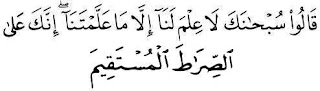 قَالُوا۟ سُبْحَـٰنَكَ لَا عِلْمَ لَنَآ إِلَّا مَا عَلَّمْتَنَآ ۖ إِنَّكَ عَلَىٰ
ٱلصِّرَٰطَ ٱلْمُسْتَقِيمَ